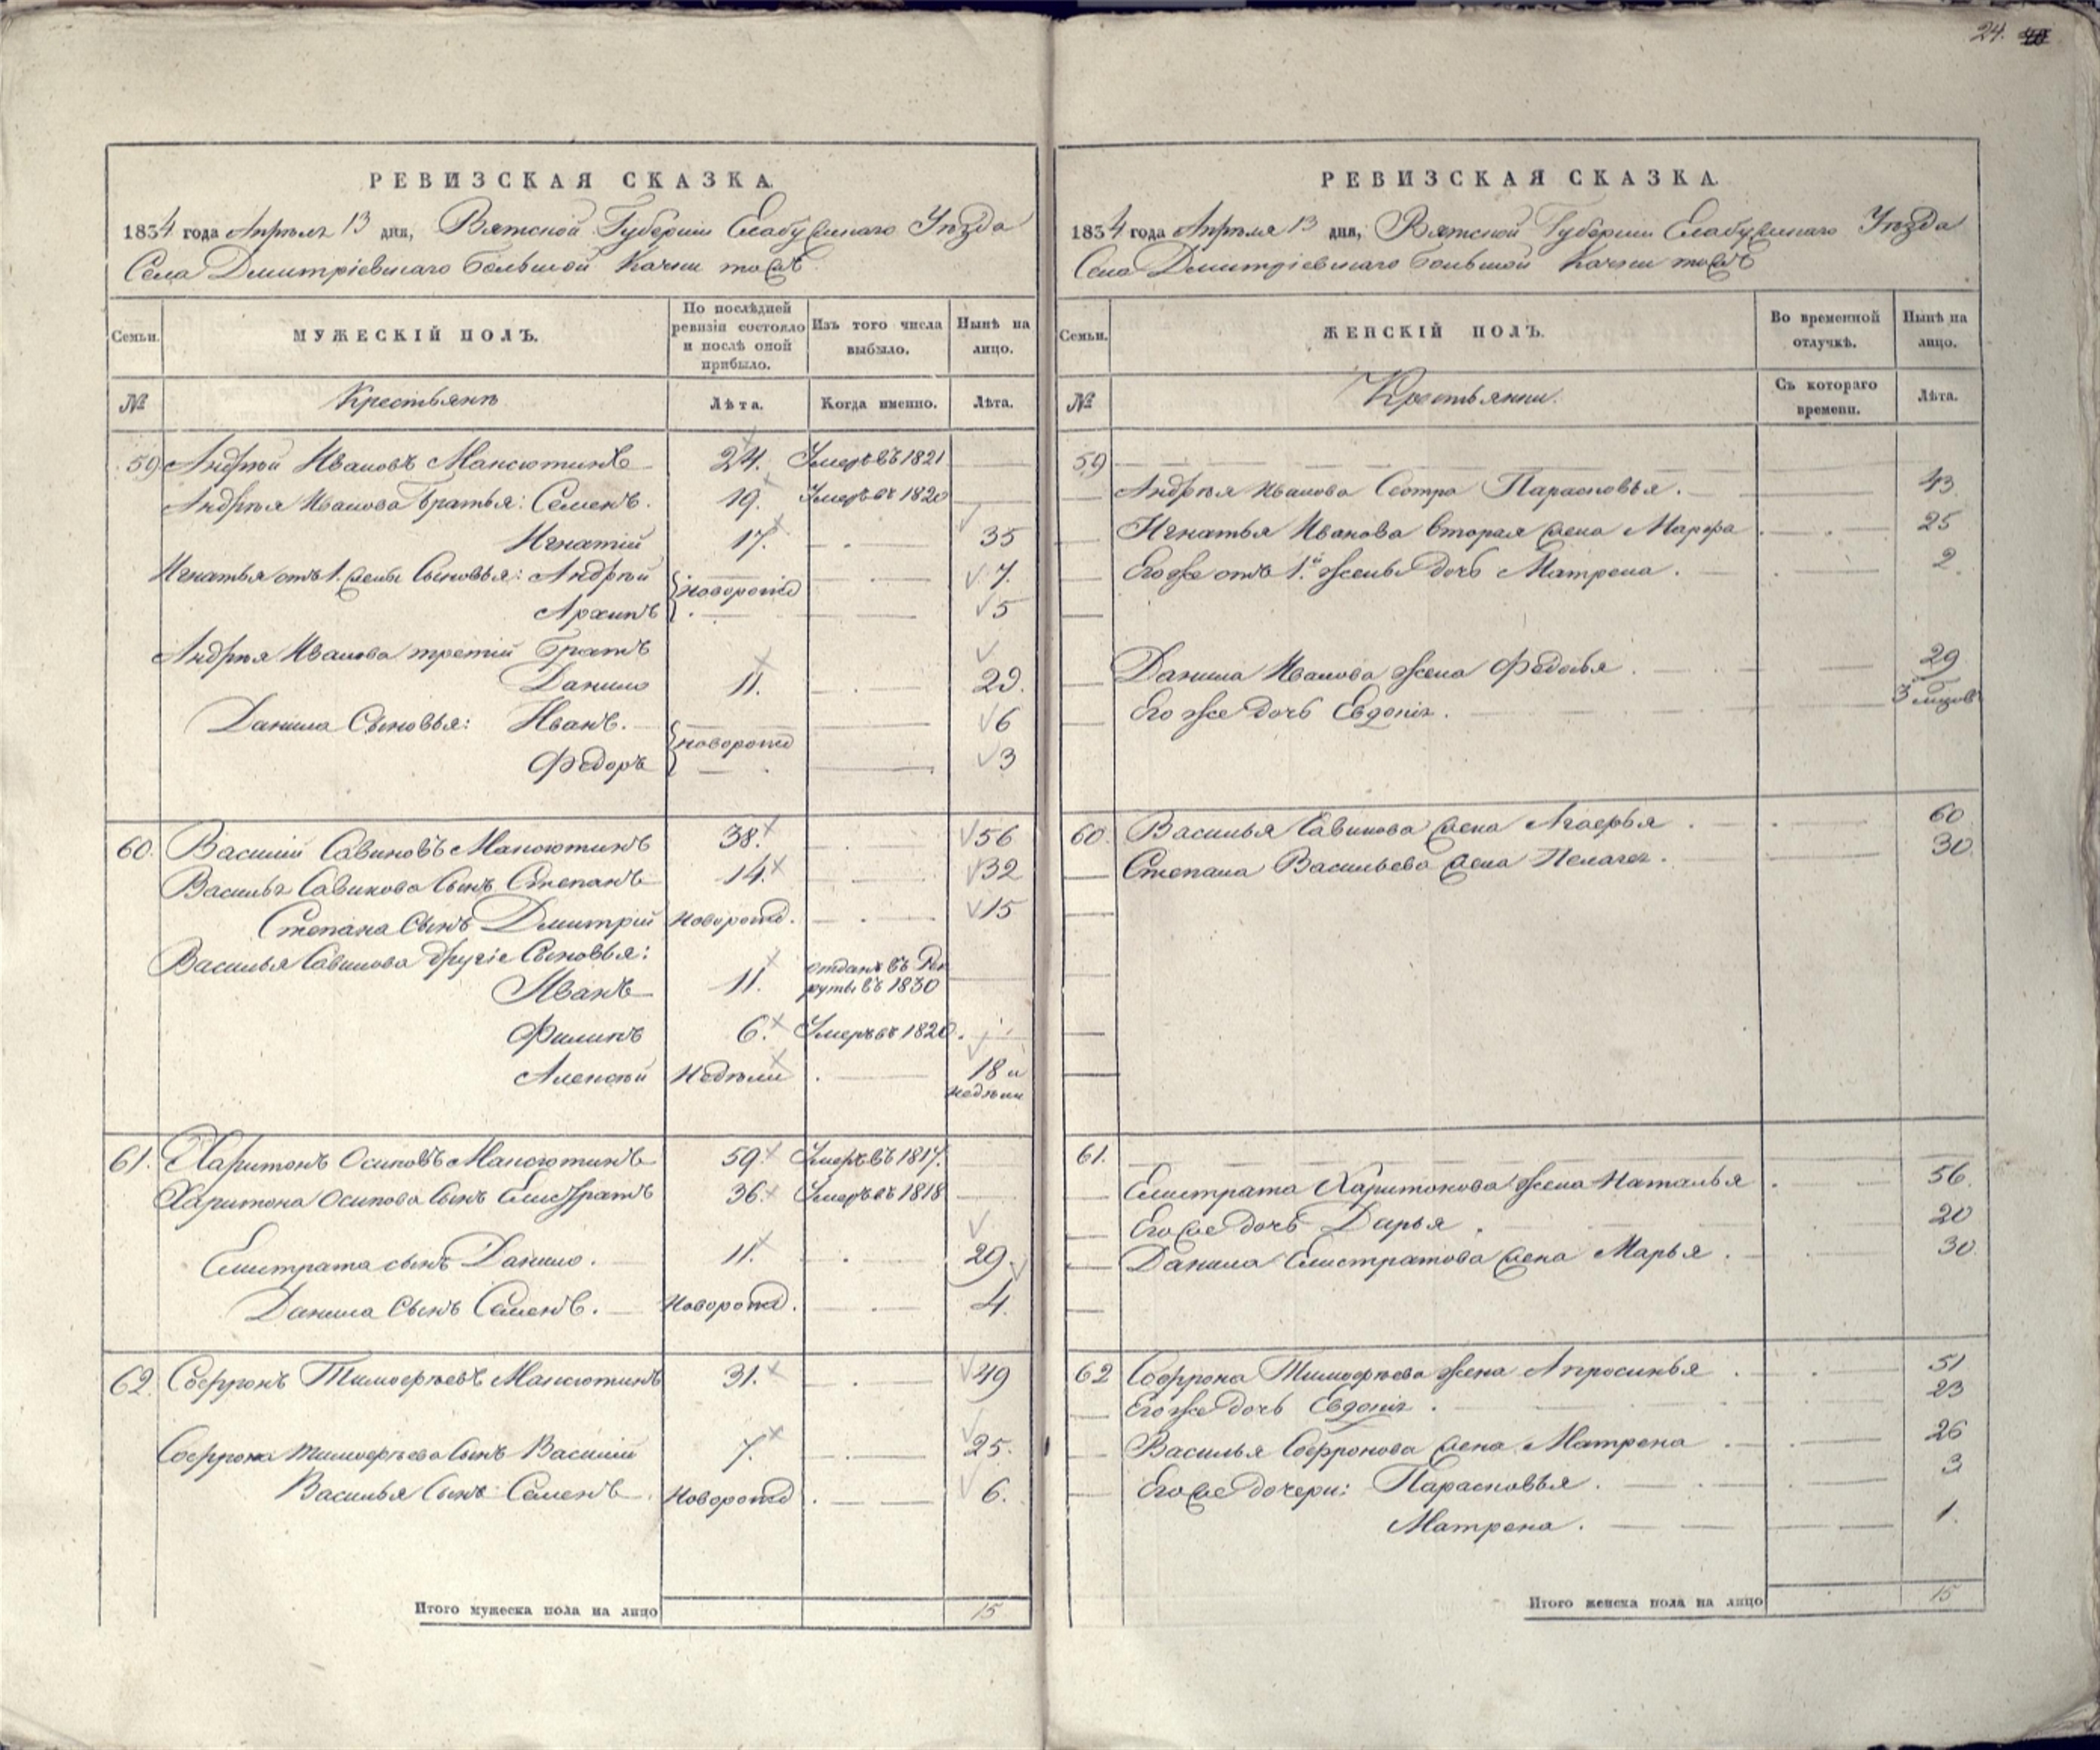 24. 48
РЕВИЗСКАЯ СКАЗКА.
1834 года Апрѣля 13 дня, Вятской Губерніи Елабужскаго Уѣзда
Села Дмитріевскаго Большой Качки тожъ
Семьи. МУЖЕСКІЙ ПОЛЪ. По послѣдней ревизіи состояло и послѣ оной прибыло. Изъ того числа выбыло. Нынѣ на лицо.
№ Крестьянъ Лѣта. Когда именно. Лѣта.
59 Андрей Ивановъ Максютинъ 24. Умеръ въ 1821
Андрея Иванова братья: Семенъ. 19. Умеръ въ 1820
Игнатій 17. 35
Игнатья отъ 1. жены Сыновья: Андрей новорожд 7.
Архипъ 5
Андрея Иванова третій братъ
Данило 11. 29.
Данила Сыновья: Иванъ. новорожд 6
Федоръ 3
60. Василій Савиновъ Максютинъ 38. 56
Василья Савинова Сынъ Степанъ 14. 32
Степана Сынъ Дмитрій новорожд. 15
Василья Савинова другіе Сыновья:
Иванъ 11. отданъ въ Рекруты въ 1830
Филипъ 6. Умеръ въ 1820.
Алексѣй Недѣли 18 и недѣли
61. Харитонъ Осиповъ Максютинъ 59. Умеръ въ 1817.
Харитона Осипова Сынъ Елистратъ 36. Умеръ въ 1818
Елистрата сынъ Данило. 11. 29.
Данила Сынъ Семенъ. новорожд. 4.
62. Софронъ Тимофѣевъ Максютинъ 31. 49
Софрона Тимофѣева Сынъ Василій 7. 25.
Василья Сынъ Семенъ новорожд. 6.
Итого мужеска пола на лицо 15
РЕВИЗСКАЯ СКАЗКА.
1834 года Апрѣля 13 дня, Вятской Губерніи Елабужскаго Уѣзда
Села Дмитріевскаго Большой Качки тожъ
Семьи. ЖЕНСКІЙ ПОЛЪ. Во временной отлучкѣ. Нынѣ на лицо.
№ Крестьянки. Съ котораго времени. Лѣта.
59
Андрея Иванова Сестра Парасковья. 43
Игнатья Иванова вторая жена Марфа 25
Его же отъ 1.й жены дочь Матрена. 2.
Данила Иванова жена Федосья. 29
Его же дочь Евдокія. 3 мѣсяц
60. Василья Савинова жена Агафья 60
Степана Васильева жена Пелагея. 30.
61.
Елистрата Харитонова жена Наталья 56.
Его же дочь Дарья. 20
Данила Елистратова жена Марья. 30.
62 Софрона Тимофѣева жена Апросинья 51
Его же дочь Евдокія. 23
Василья Софронова жена Матрена 26
Его же дочери: Парасковья. 3
Матрена. 1.
Итого женска пола на лицо 15